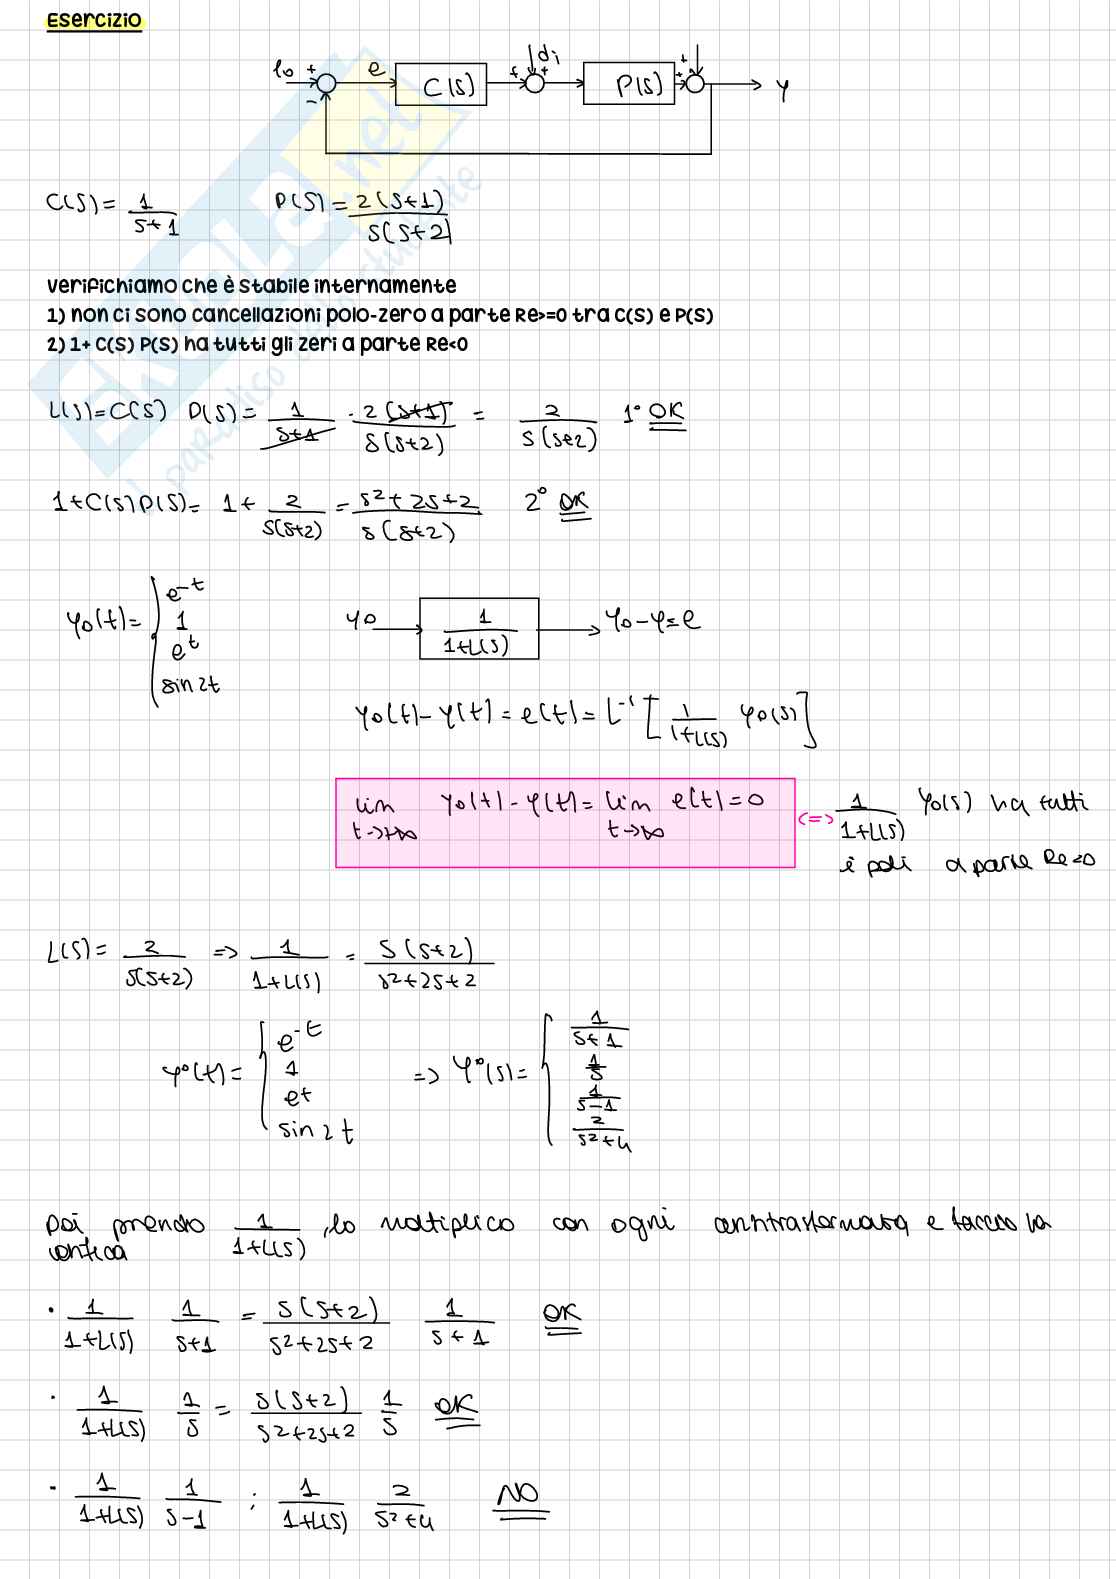 Esercizio
y₀ + - e C(s) + dᵢ + P(s) + + y
C(S) = 1/(s+1) P(S) = 2(s+1)/(s(s+2)
verifichiamo che è stabile internamente
1) non ci sono cancellazioni polo-zero a parte Re>=0 tra C(S) e P(S)
2) 1+ C(S) P(S) ha tutti gli zeri a parte Re<0
L(s)=C(s) P(s) = 1/(s+1) · 2(s+1)/(s(s+2)) = 2/(s(s+2) 1° OK
1+C(s)P(s)= 1+ 2/(s(s+2)) = (s²+2s+2)/(s(s+2)) 2° OK
y₀(t)= { e^-t
1
e^t
sin 2t
y₀ → 1/(1+L(s)) → y₀-y=e
y₀(t)-y(t) = e(t) = L⁻¹ [ 1/(1+L(s)) y₀(s) ]
lim t→+∞ y₀(t)-y(t) = lim t→∞ e(t)=0 <=> 1/(1+L(s)) y₀(s) ha tutti
i poli a parte Re<0
L(s)= 2/(s(s+2)) => 1/(1+L(s)) = s(s+2)/(s²+2s+2)
y°(t)= { e^-t
1
e^t
sin 2t
=> y°(s)= { 1/(s+1)
1/s
1/(s-1)
2/(s²+4)
poi prendo 1/(1+L(s)), lo moltiplico con ogni antitrasformata e faccio la
verifica
· 1/(1+L(s)) 1/(s+1) = s(s+2)/(s²+2s+2) 1/(s+1) OK
· 1/(1+L(s)) 1/s = s(s+2)/(s²+2s+2) 1/s OK
· 1/(1+L(s)) 1/(s-1) ; 1/(1+L(s)) 2/(s²+4) NO
SKUOLA.net
paradiso dello studente